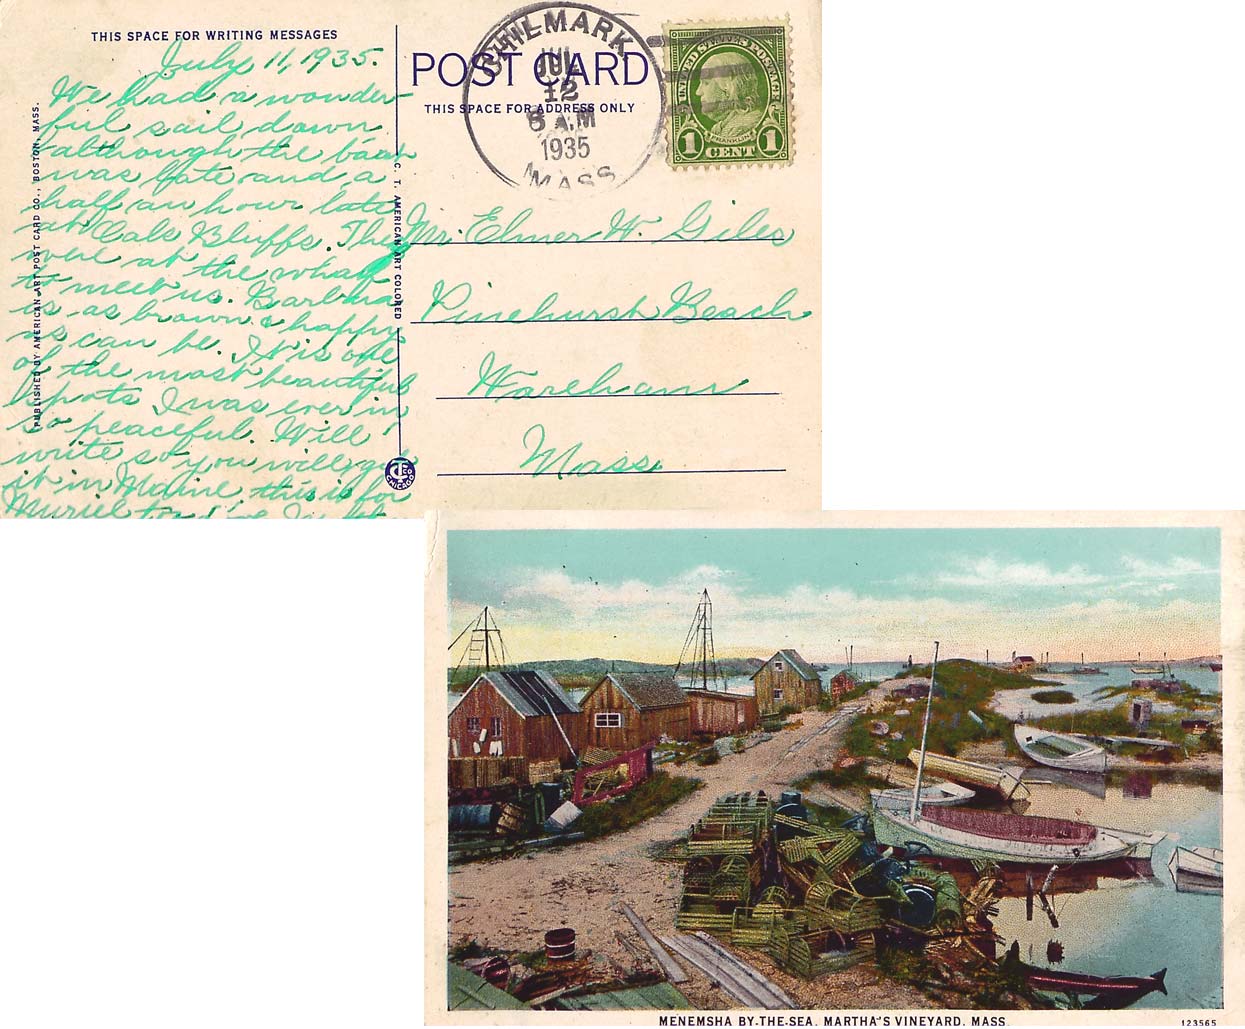 THIS SPACE FOR WRITING MESSAGES
July 11, 1935.
We had a wonder-
ful sail down
although the boat
was late and a
half an hour late
at Oak Bluffs. They
were at the wharf
to meet us. Barbara
is as brown & happy
as can be. It is one
of the most beautiful
spots I was ever in
so peaceful. Will
write so you will get
it in Maine this is for
Muriel too
PUBLISHED BY AMERICAN ART POST CARD CO., BOSTON, MASS.
C. T. AMERICAN ART COLORED
POST CARD
THIS SPACE FOR ADDRESS ONLY
CHILMARK
JUL
12
8 A.M
1935
MASS
UNITED STATES POSTAGE
FRANKLIN
1 CENT 1
Mr. Elmer W. Giles
Pinehurst Beach
Wareham
Mass.
CT CO
CHICAGO
MENEMSHA BY-THE-SEA, MARTHA'S VINEYARD, MASS.
123565